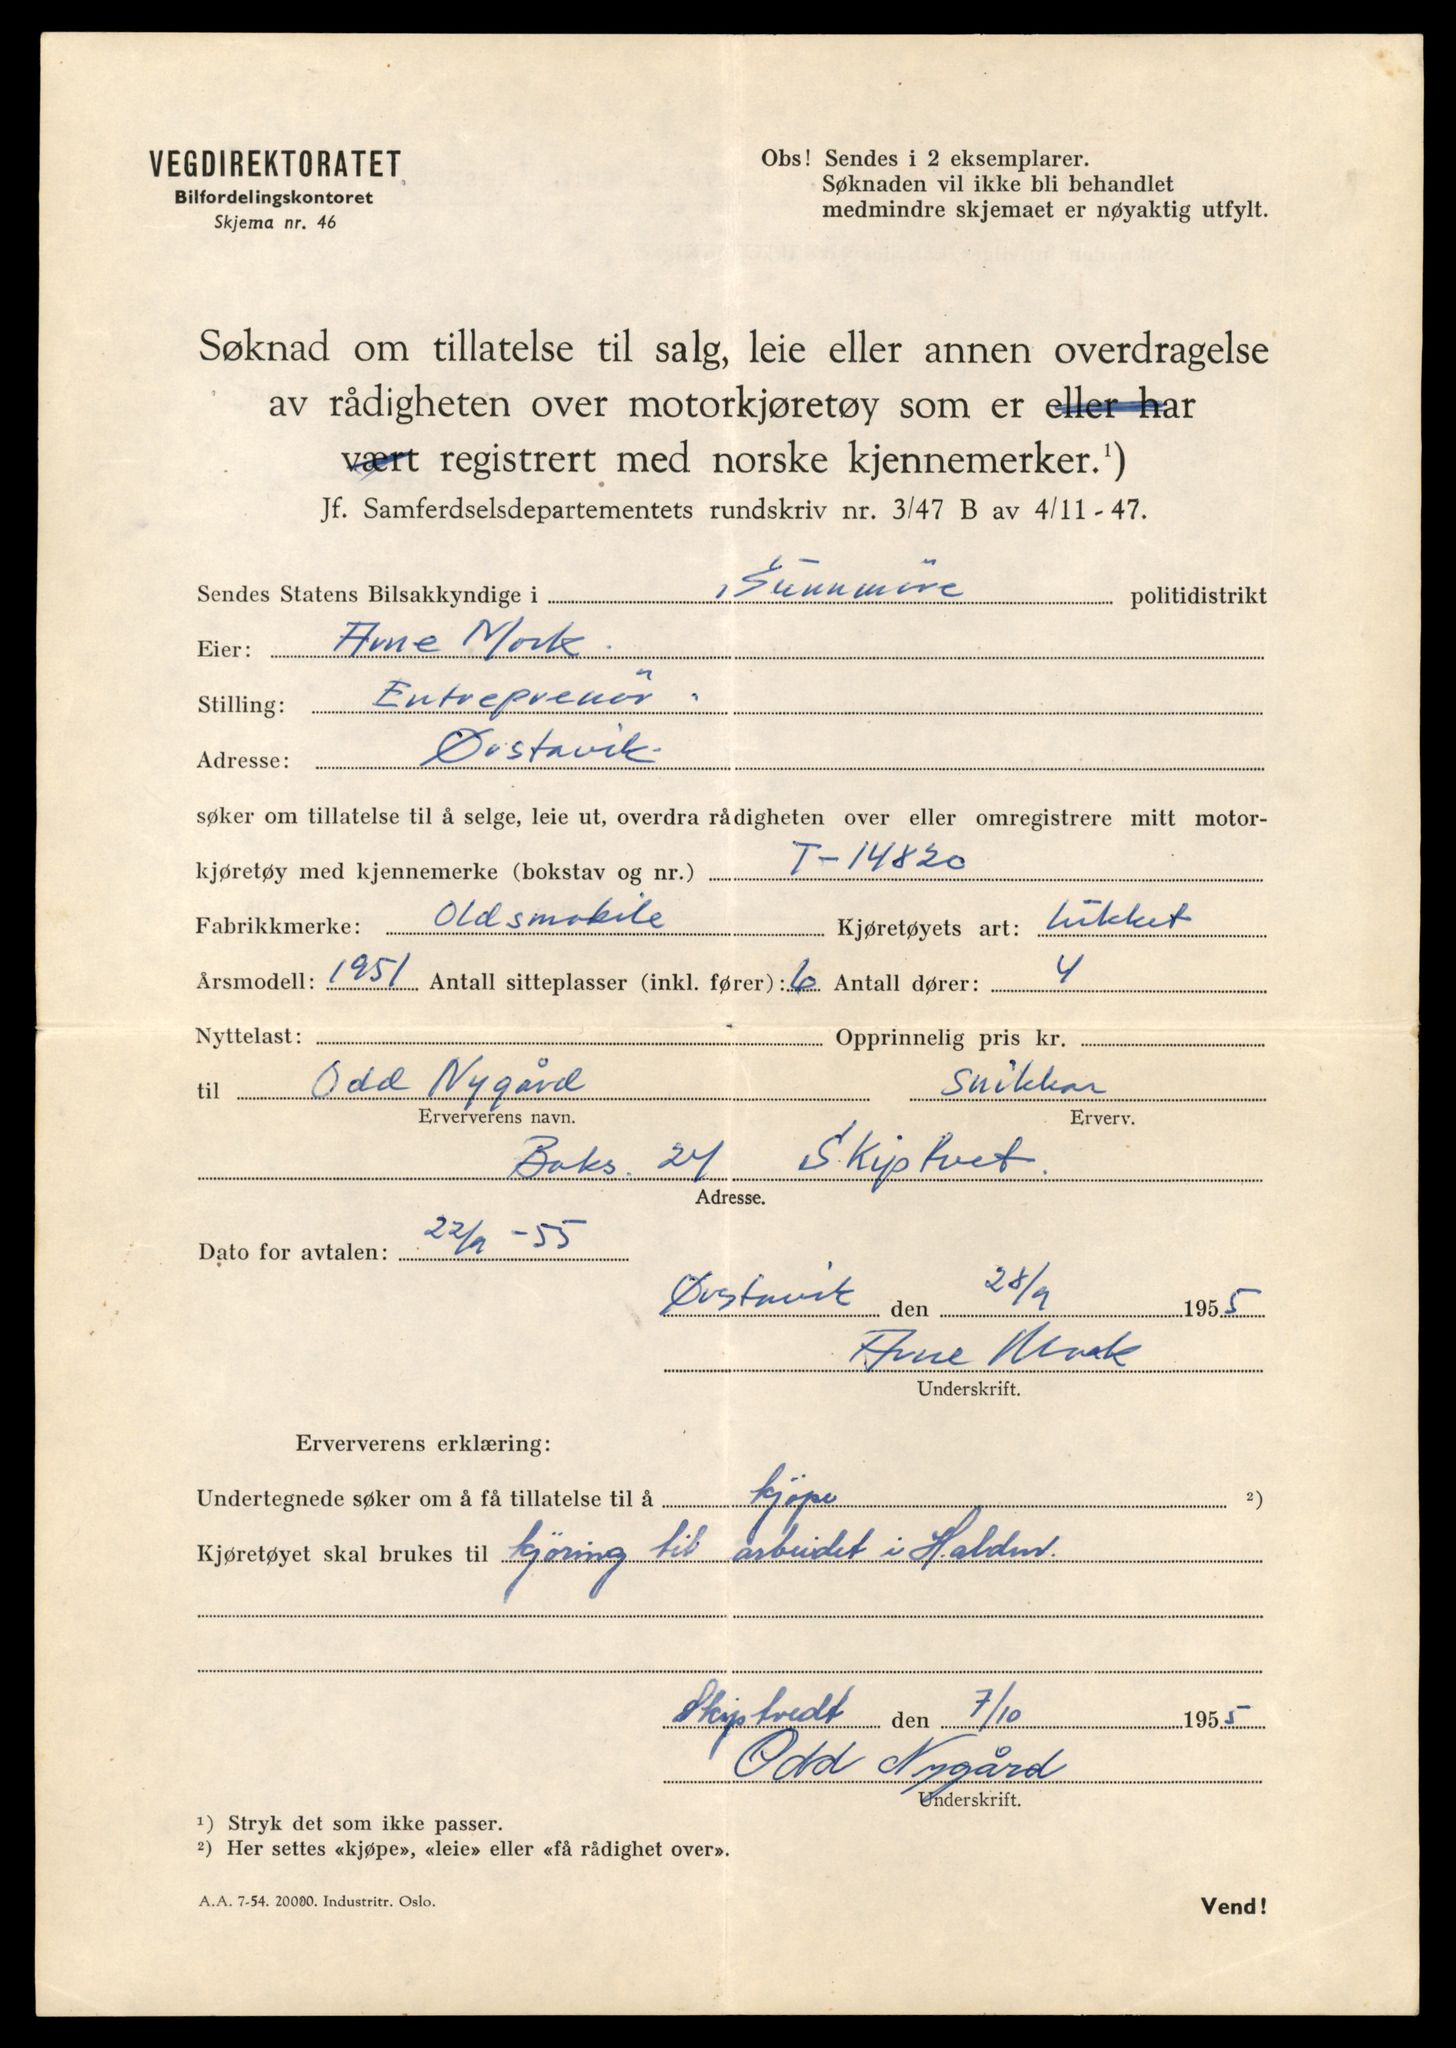 VEGDIREKTORATET
Bilfordelingskontoret
Skjema nr. 46
Obs! Sendes i 2 eksemplarer.
Søknaden vil ikke bli behandlet
medmindre skjemaet er nøyaktig utfylt.
Søknad om tillatelse til salg, leie eller annen overdragelse
av rådigheten over motorkjøretøy som er eller har
vært registrert med norske kjennemerker.¹)
Jf. Samferdselsdepartementets rundskriv nr. 3/47 B av 4/11-47.
Sendes Statens Bilsakkyndige i Sunnmöre politidistrikt
Eier: Arne Mork.
Stilling: Entreprenör.
Adresse: Ørstavik.
søker om tillatelse til å selge, leie ut, overdra rådigheten over eller omregistrere mitt motor-
kjøretøy med kjennemerke (bokstav og nr.) T-14820
Fabrikkmerke: Oldsmobile Kjøretøyets art: Lukket
Årsmodell: 1951 Antall sitteplasser (inkl. fører): 6 Antall dører: 4
Nyttelast: Opprinnelig pris kr.
til Odd Nygård Snikkar
Erververens navn. Erverv.
Boks. 24 Skiptvet.
Adresse.
Dato for avtalen: 22/9 -55
Ørstavik den 28/9 1955
Arne Mork
Underskrift.
Erververens erklæring:
Undertegnede søker om å få tillatelse til å kjöpe ²)
Kjøretøyet skal brukes til kjöring til arbeidet i Halden.
Skiptvedt den 7/10 1955
Odd Nygård
Underskrift.
¹) Stryk det som ikke passer.
²) Her settes «kjøpe», «leie» eller «få rådighet over».
A.A. 7-54. 20000. Industritr. Oslo.
Vend!